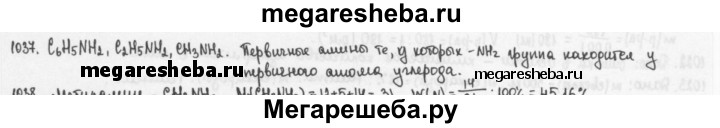 megaresheba.ru
1037. C₆H₅NH₂, C₂H₅NH₂, CH₃NH₂. Первичные амины те, у которых -NH₂ группа находится у
www.megaresheba.ru первичного атома углерода. www.megaresheba.ru
1038. Метиламин CH₃NH₂ 14 · 100% = 45,16%
Мегарешеба.ру